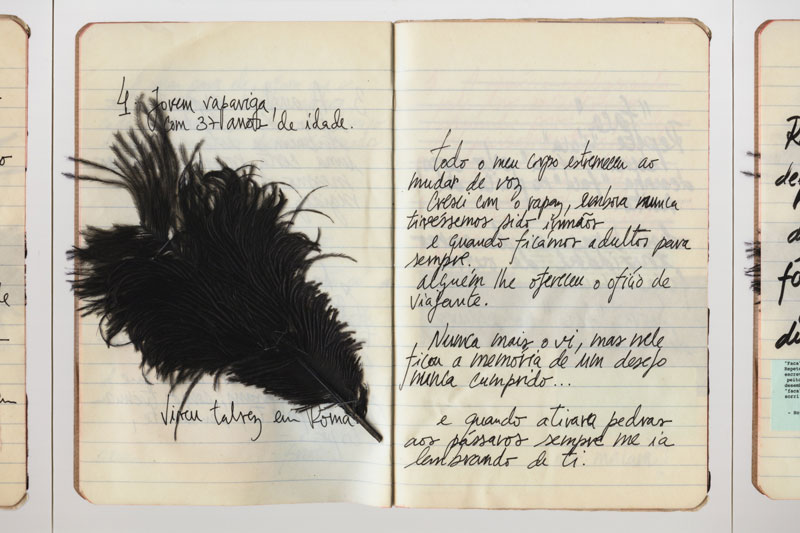 4. Jovem rapariga,
com 37 anos de idade.
Viveu talvez em Roma
todo o meu corpo estremeceu ao
mudar de voz
Cresci com o rapaz, embora nunca
tivéssemos sido irmãos
e quando ficámos adultos para
sempre.
alguém lhe ofereceu o ofício de
viajante.
Nunca mais o vi, mas nele
ficou a memória de um desejo
nunca cumprido...
e quando atirava pedras
aos pássaros sempre me ia
lembrando de ti.